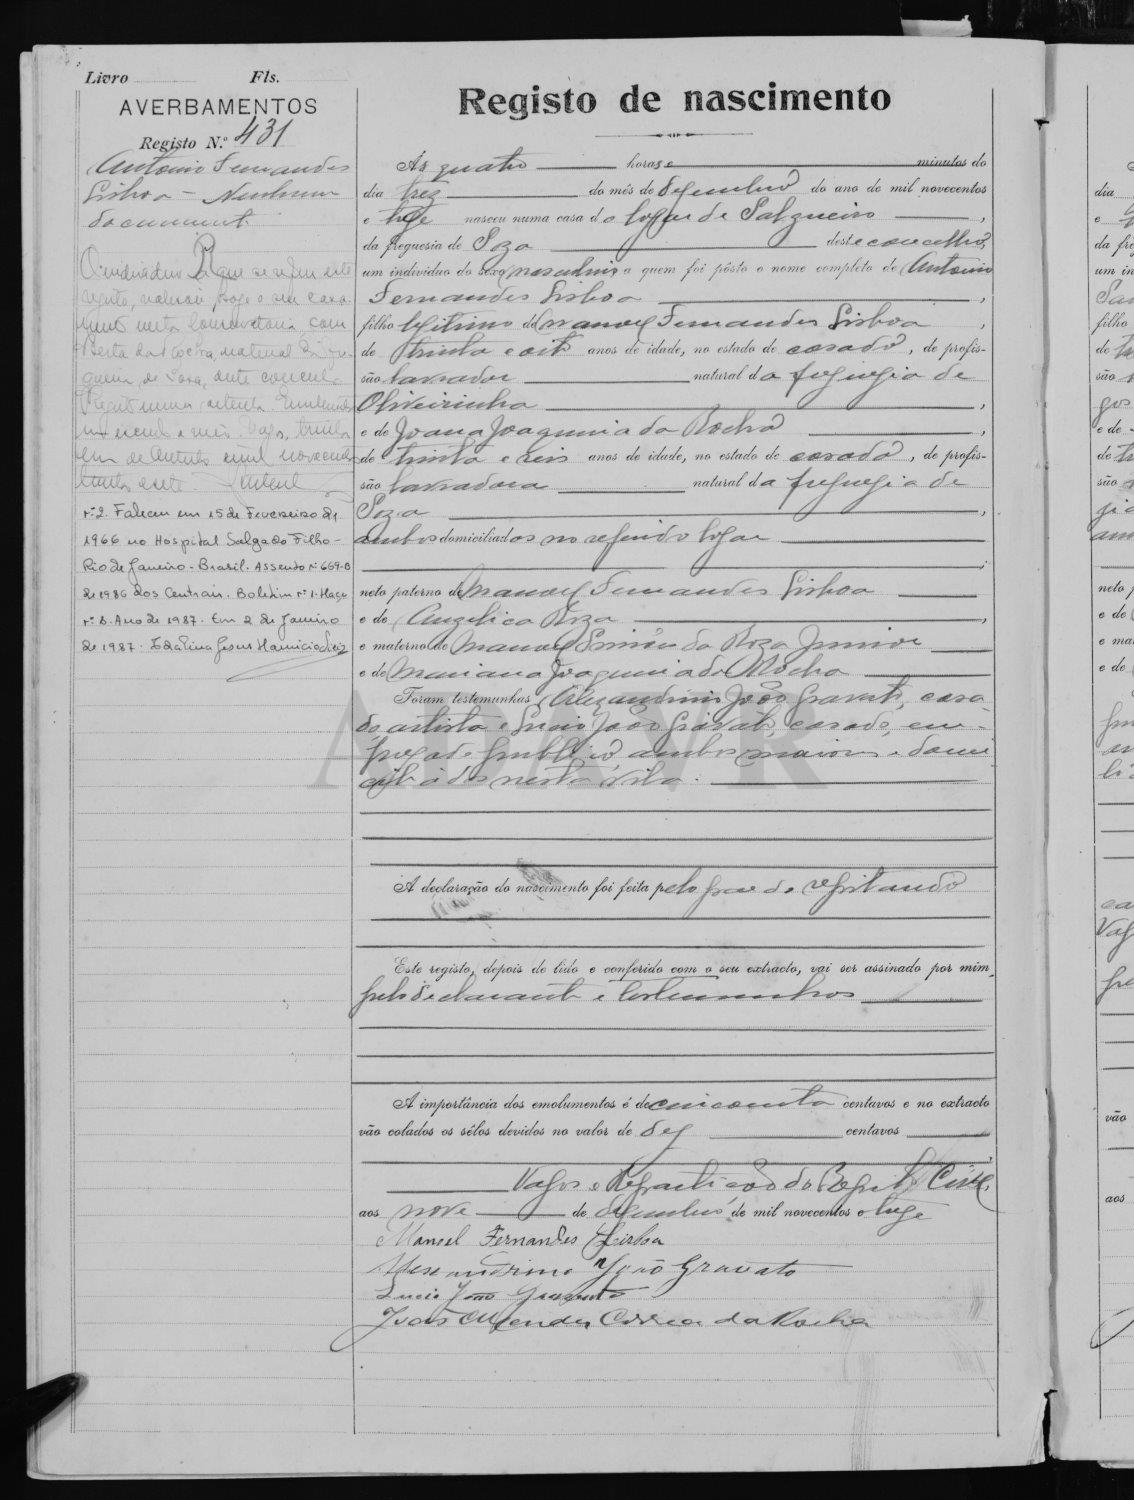 Livro Fls.
AVERBAMENTOS
Registo N.º 431
Antonio Fernandes
Lisboa - Nenhum
documento
O individuo a que se refere este
registo, realisou hoje o seu casa-
mento nesta Conservatoria com
Berta da Rocha, natural
de Soza, deste concelho.
Registo numero setenta. Emolumentos
Vagos, trinta
um de mil novecentos
trinta e sete.
nº 2. Faleceu em 15 de Fevereiro de
1966 no Hospital Salgado Filho -
Rio de Janeiro - Brasil. Assento nº 669-B
de 1986 dos Centrais. Boletim nº 1. Maço
nº 6. Ano de 1987. Em 2 de Janeiro
de 1987.
Registo de nascimento
Ás quatro horas e minutos do
dia trez do mês de Dezembro do ano de mil novecentos
e treze nasceu numa casa do logar de Salgueiro ,
da freguesia de Soza deste concelho,
um individuo do sexo masculino a quem foi pôsto o nome completo de Antonio
Fernandes Lisboa ,
filho legitimo de Manoel Fernandes Lisboa ,
de trinta e oito anos de idade, no estado de casado, de profis-
são lavrador natural da freguezia de
Oliveirinha ,
e de Joana Joaquina da Rocha ,
de trinta e seis anos de idade, no estado de casada, de profis-
são lavradora natural da freguezia de
Soza ,
ambos domiciliados no referido logar
neto paterno de Manoel Fernandes Lisboa
e de Angelica Roza ,
e materno de Manoel Simões da Roza Junior
e de Mariana Joaquina da Rocha
Foram testemunhas Alexandrino João Gravato, casa-
do, artista e Lucio João Gravato, casado, em-
pregado publico, ambos maiores e domi-
ciliados nesta vila.
A declaração do nascimento foi feita pelo pae do registando
Este registo, depois de lido e conferido com o seu extracto, vai ser assinado por mim,
pelo declarante e testemunhas
A importância dos emolumentos é de cincoenta centavos e no extracto
vão colados os sêlos devidos no valor de dez centavos
Vagos e Repartição do Registo Civil,
aos nove de Dezembro de mil novecentos e treze
Manoel Fernandes Lisboa
Alexandrino João Gravato
Lucio João Gravato
João Mendes Correa da Rocha